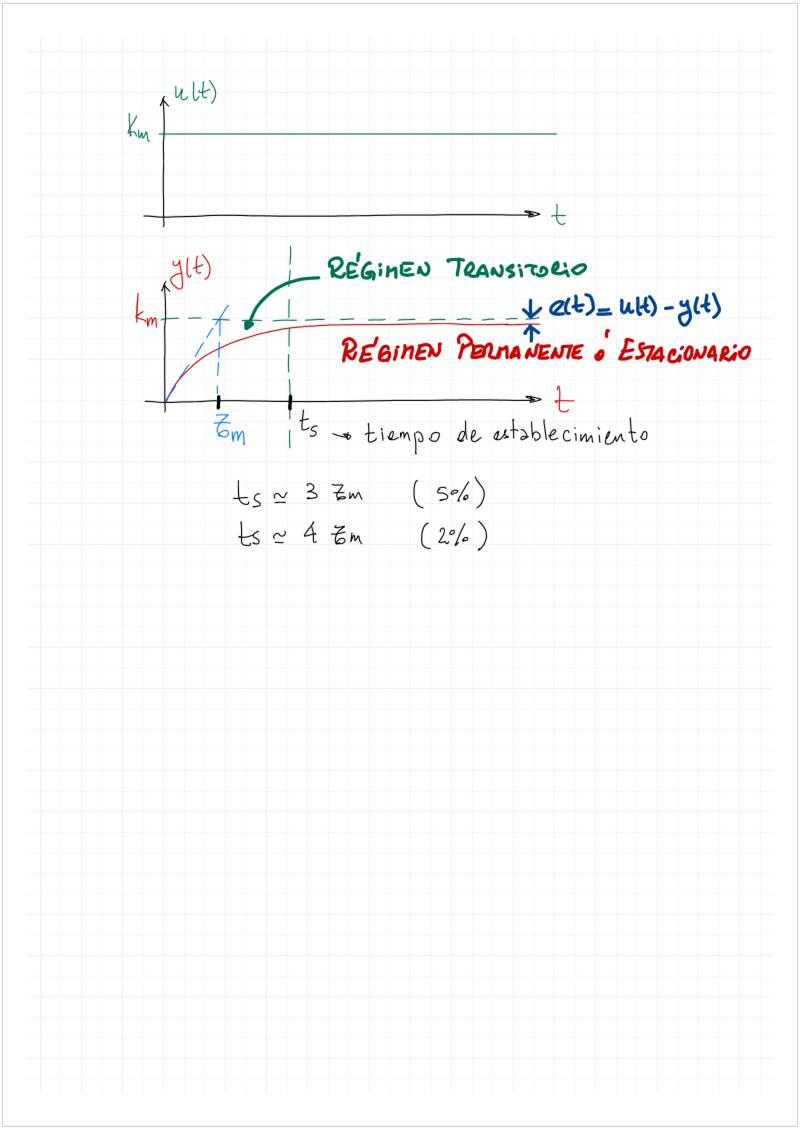 u(t)
Km
t
y(t)
RÉGIMEN TRANSITORIO
Km
e(t) = u(t) - y(t)
RÉGIMEN PERMANENTE ó ESTACIONARIO
t
τm
ts → tiempo de establecimiento
ts ≃ 3 τm (5%)
ts ≃ 4 τm (2%)